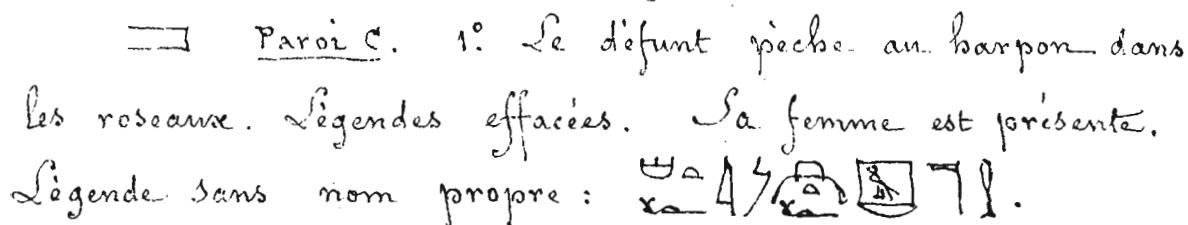 Paroi C. 1º Le défunt pèche au harpon dans
les roseaux. Légendes effacées. Sa femme est présente.
Légende sans nom propre :